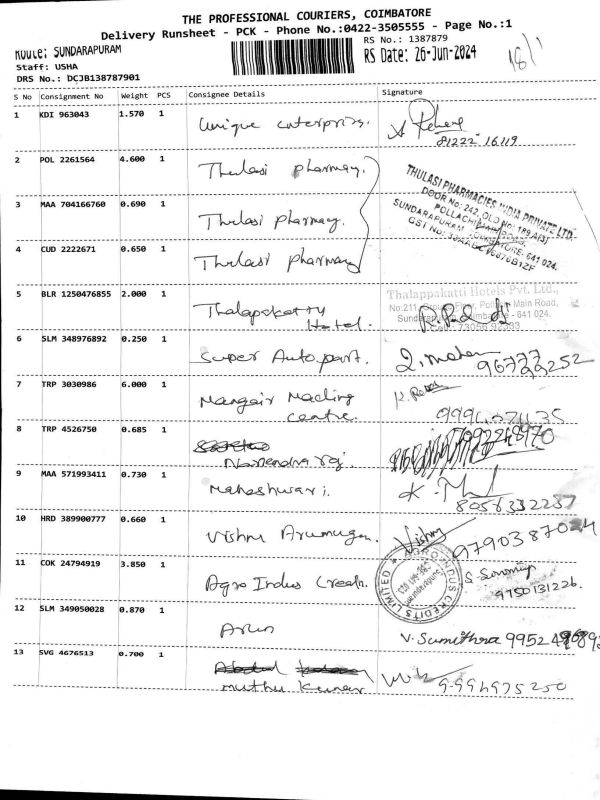 THE PROFESSIONAL COURIERS, COIMBATORE
Delivery Runsheet - PCK - Phone No.:0422-3505555 - Page No.:1
Route: SUNDARAPURAM
RS No.: 1387879
Staff: USHA
RS Date: 26-Jun-2024
DRS No.: DCJB138787901
S No Consignment No Weight PCS Consignee Details Signature
1 KDI 963043 1.570 1 Unique enterprise.
81222 16119
2 POL 2261564 4.600 1 Thulasi pharmacy.
3 MAA 704166760 0.690 1 Thulasi pharmacy.
4 CUD 2222671 0.650 1 Thulasi pharmacy
THULASI PHARMACIES INDIA PRIVATE LTD.
DOOR No: 242, OLD No: 189 A/31
POLLACHI MAIN ROAD,
SUNDARAPURAM, COIMBATORE- 641 024.
5 BLR 1250476855 2.000 1 Thalapakatty
Hotel.
Thalappakatti Hotels Pvt. Ltd.,
No:211, Ground Floor, Pollachi Main Road,
Sundarapuram, Coimbatore - 641 024.
6 SLM 348976892 0.250 1 Super Autopart.
7 TRP 3030986 6.000 1
centre.
8 TRP 4526750 0.685 1
Narendra raj.
9 MAA 571993411 0.730 1 Maheshwari.
8056332237
10 HRD 389900777 0.660 1 Vishnu Arumugam. Vishnu
9790387024
11 COK 24794919 3.850 1 Agro Indus Credit.
AGRO INDUS CREDITS LIMITED
9750131226.
12 SLM 349050028 0.870 1 Arun
V. Sumithra
13 SVG 4676513 0.700 1
Muthu Kumar
9994975250